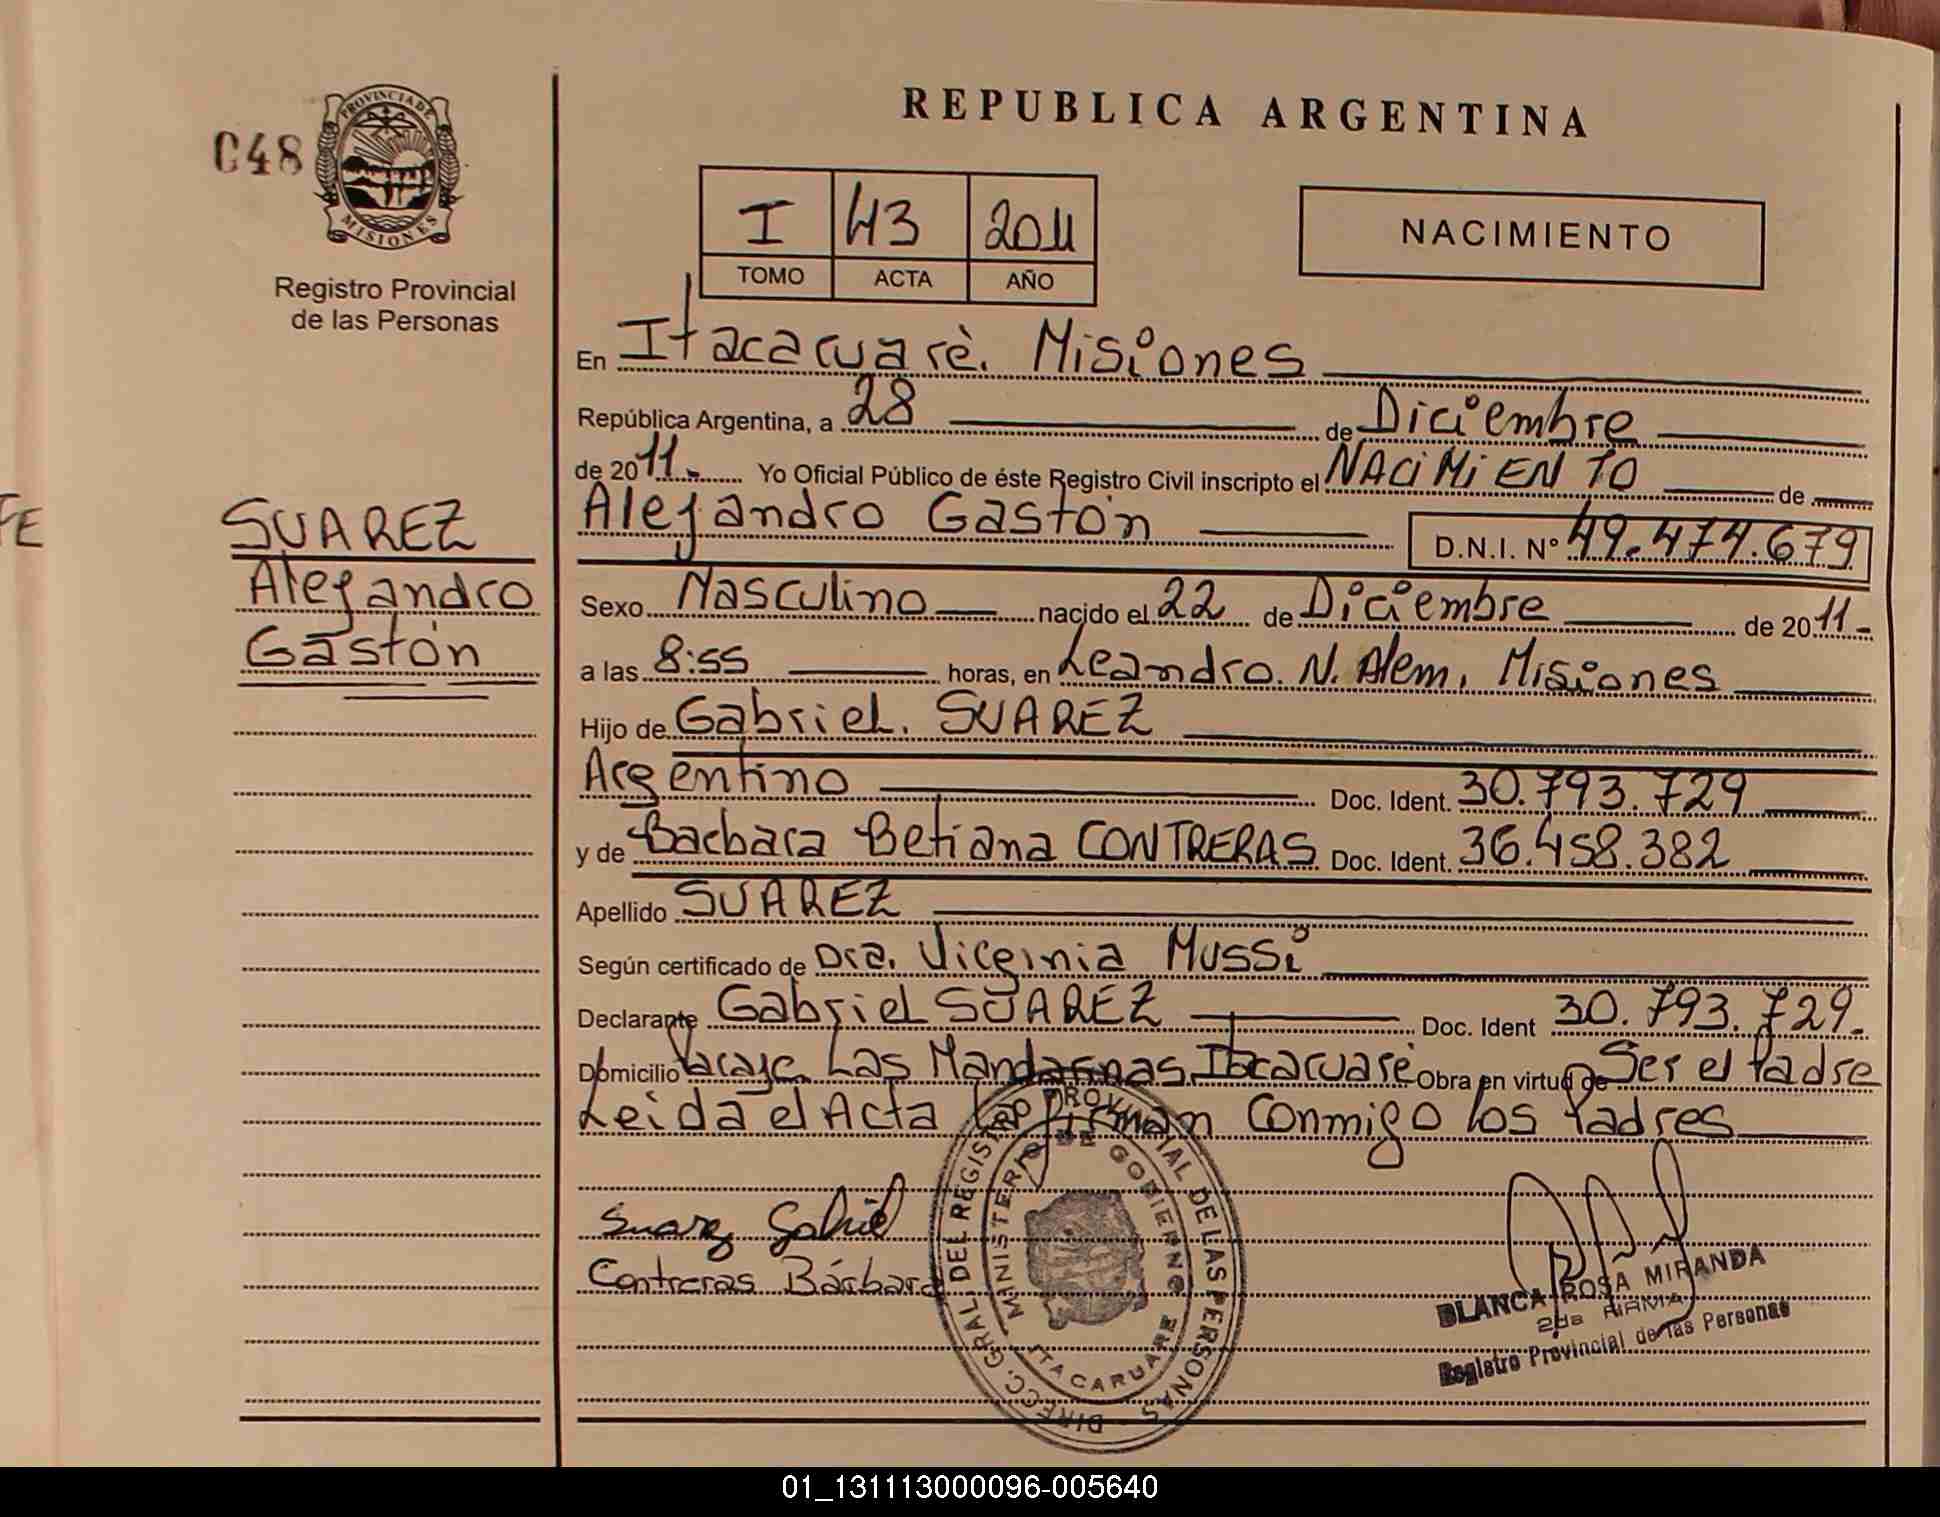 REPUBLICA ARGENTINA
048
PROVINCIA DE
MISIONES
Registro Provincial
de las Personas
I 43 2011
TOMO ACTA AÑO
NACIMIENTO
En Itacacuarè. Misiones
República Argentina, a 28 de Diciembre
de 2011.- Yo Oficial Público de éste Registro Civil inscripto el NACIMIENTO de
FE
SUAREZ
Alejandro
Gastón
Alejandro Gastón D.N.I. Nº 49.474.679
Sexo Masculino nacido el 22 de Diciembre de 2011-
a las 8:55 horas, en Leandro. N. Alem, Misiones
Hijo de Gabriel. SUAREZ
Argentino Doc. Ident. 30.793.729
y de Barbara Betiana CONTRERAS Doc. Ident. 36.458.382
Apellido SUAREZ
Según certificado de Dra. Virginia Mussi
Declarante Gabriel SUAREZ Doc. Ident 30.793.729.
Domicilio Las Mandarinas Itacaruaré Obra en virtud de Ser el Padre
Leida el Acta la firman Conmigo los Padres
Suarez Gabriel
Contreras Bárbara
DIRECC. GRAL. DEL REGISTRO PROVINCIAL DE LAS PERSONAS
MINISTERIO DE GOBIERNO
ITACARUARE
BLANCA ROSA MIRANDA
2da FIRMA
Registro Provincial de las Personas
01_131113000096-005640